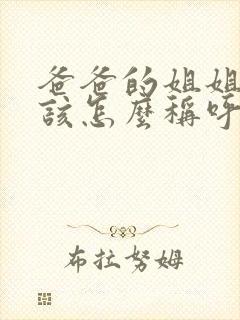 爸爸的姐姐
該怎麼稱呼
布拉努姆